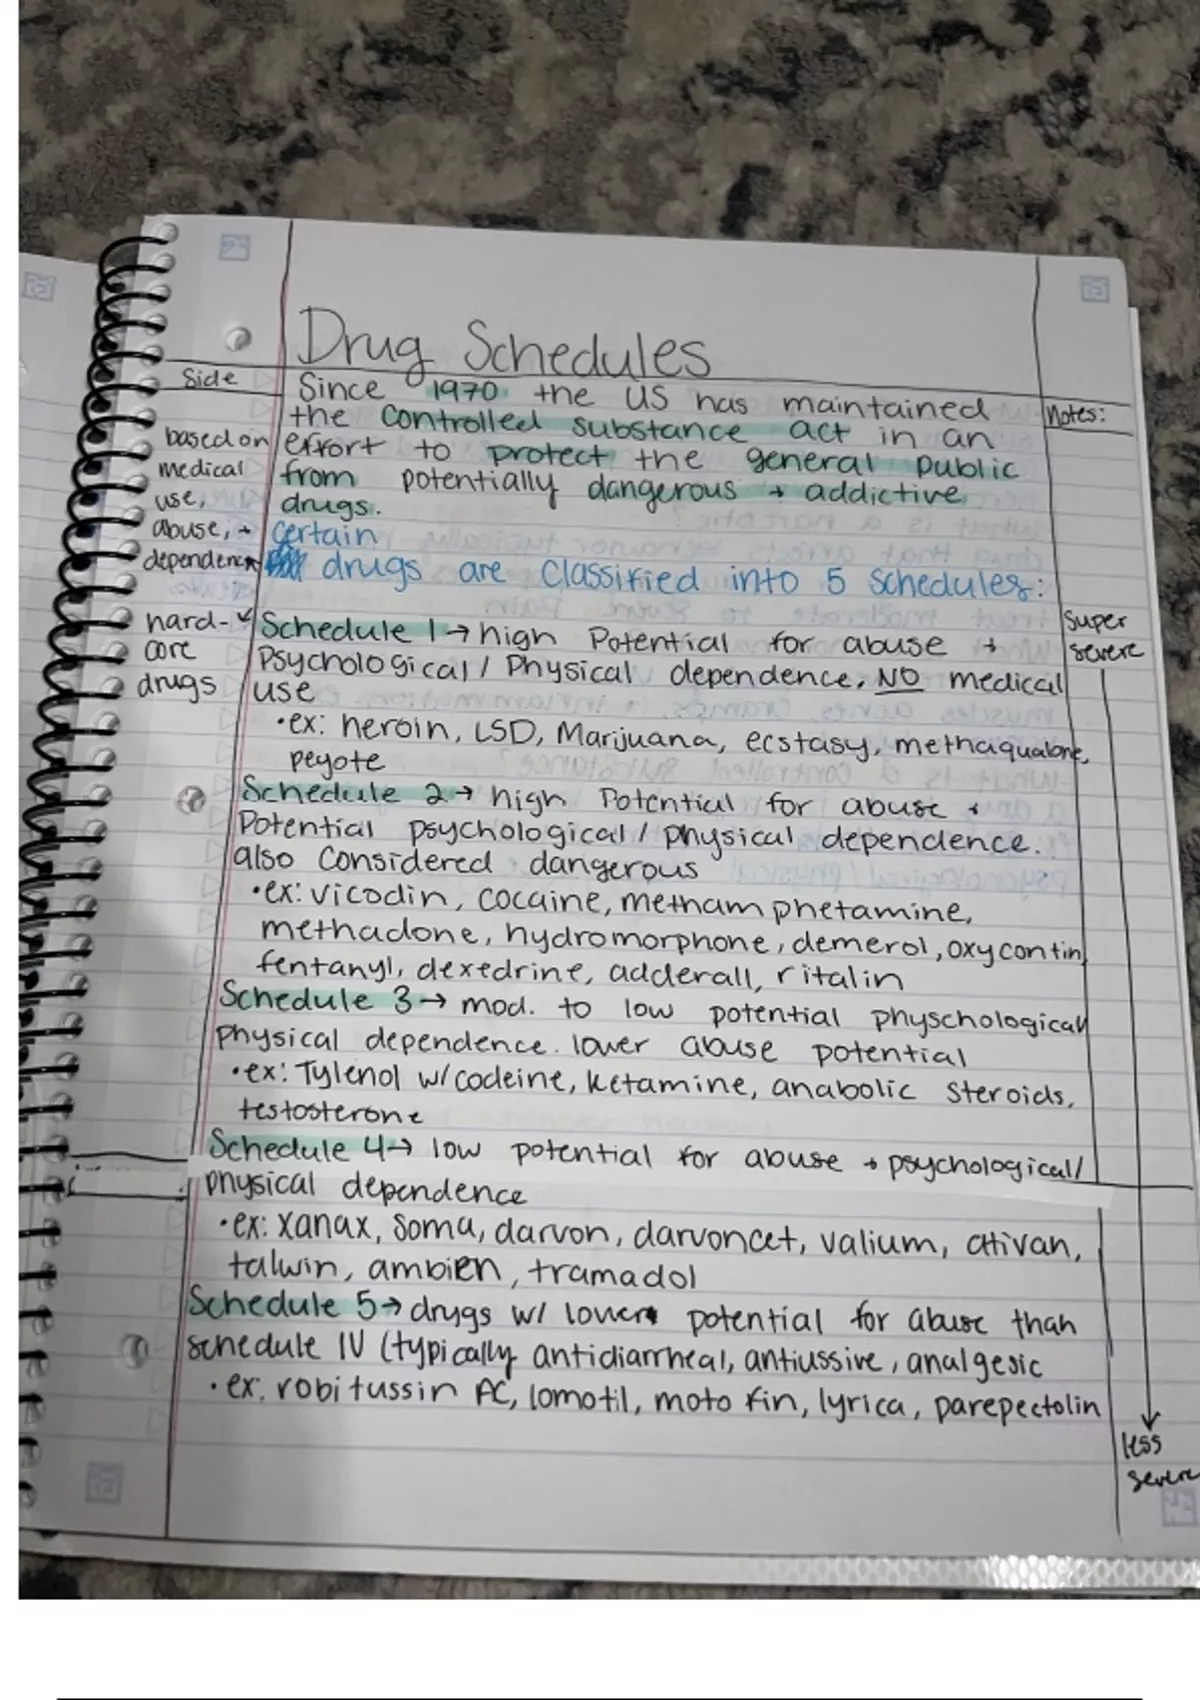 Drug Schedules
Side
Since 1970 the US has maintained
the Controlled Substance act in an
effort to protect the general public
from potentially dangerous + addictive
drugs.
Notes:
based on
medical
use,
abuse, +
dependence
certain
drugs are classified into 5 schedules:
hard-
core
drugs
Super
severe
Schedule 1→ high Potential for abuse +
Psychological / Physical dependence. NO medical
use
•ex: heroin, LSD, Marijuana, ecstasy, methaqualone,
peyote
Schedule 2→ high Potential for abuse +
Potential psychological / physical dependence.
also considered dangerous
•ex: vicodin, cocaine, methamphetamine,
methadone, hydromorphone, demerol, oxycontin,
fentanyl, dexedrine, adderall, ritalin
Schedule 3→ mod. to low potential physchological/
Physical dependence. lower abuse potential
•ex: Tylenol w/codeine, ketamine, anabolic steroids,
testosterone
Schedule 4→ low potential for abuse + psychological/
physical dependence
•ex: xanax, soma, darvon, darvoncet, valium, ativan,
talwin, ambien, tramadol
Schedule 5→ drugs w/ lower potential for abuse than
schedule IV (typically antidiarrheal, antiussive, analgesic
•ex: robitussin AC, lomotil, motofin, lyrica, parepectolin
less
severe